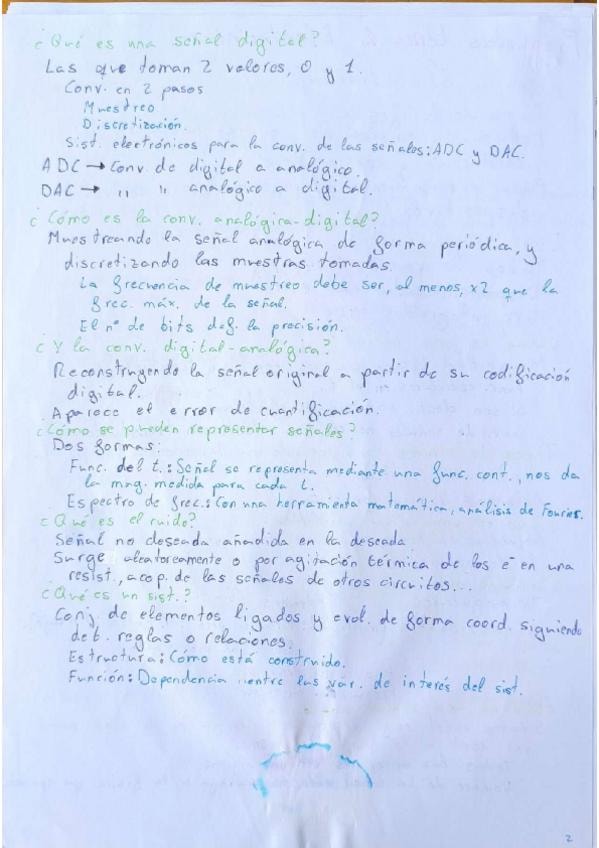 ¿Qué es una señal digital?
Las que toman 2 valores, 0 y 1.
Conv. en 2 pasos
Muestreo
Discretización.
Sist. electrónicos para la conv. de las señales: ADC y DAC.
ADC → Conv. de digital a analógico.
DAC → " " analógico a digital.
¿Cómo es la conv. analógica-digital?
Muestreando la señal analógica de forma periódica, y
discretizando las muestras tomadas.
La frecuencia de muestreo debe ser, al menos, x2 que la
frec. máx. de la señal.
El nº de bits def. la precisión.
¿Y la conv. digital-analógica?
Reconstruyendo la señal original a partir de su codificación
digital.
Aparece el error de cuantificación.
¿Cómo se pueden representar señales?
Dos formas:
Func. del t.: Señal se representa mediante una func. cont., nos da
la mag. medida para cada t.
Espectro de frec.: Con una herramienta matemática, análisis de Fourier.
¿Qué es el ruido?
Señal no deseada añadida en la deseada
Surge aleatoreamente o por agitación térmica de los e⁻ en una
resist., acop. de las señales de otros circuitos...
¿Qué es un sist.?
Conj. de elementos ligados y evol. de forma coord. siguiendo
det. reglas o relaciones.
Estructura: Cómo está construido.
Función: Dependencia entre las var. de interés del sist.
2